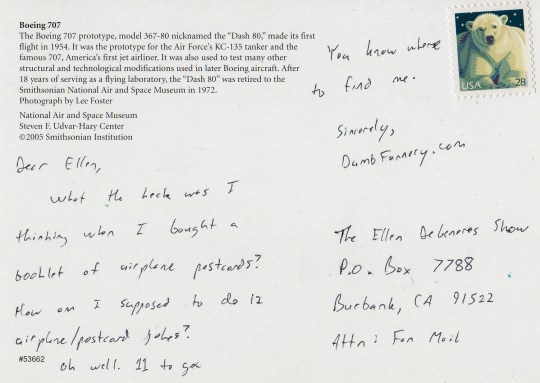 Boeing 707
The Boeing 707 prototype, model 367-80 nicknamed the “Dash 80,” made its first
flight in 1954. It was the prototype for the Air Force’s KC-135 tanker and the
famous 707, America’s first jet airliner. It was also used to test many other
structural and technological modifications used in later Boeing aircraft. After
18 years of serving as a flying laboratory, the “Dash 80” was retired to the
Smithsonian National Air and Space Museum in 1972.
Photograph by Lee Foster
National Air and Space Museum
Steven F. Udvar-Hazy Center
©2005 Smithsonian Institution
Dear Ellen,
What the heck was I
thinking when I bought a
booklet of airplane postcards?
How am I supposed to do 12
airplane/postcard jokes?
Oh well. 11 to go
#53662
You know where
to find me.
Sincerely,
DumbFunnery.com
USA 28
The Ellen Degeneres Show
P.O. Box 7788
Burbank, CA 91522
Attn: Fan Mail